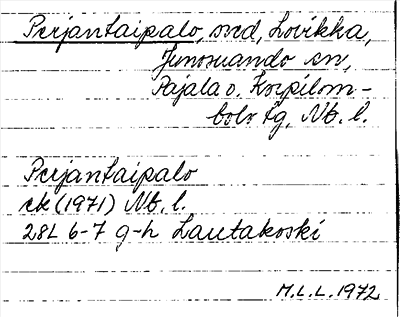 Perjantaipalo, snd, Lovikka,
Junosuando sn,
Pajala o. Korpilom-
bolo tg, Nb. l.
Perjantaipalo
ek (1971) Nb. l.
28L 6-7 g-h Lautakoski
M.L.L. 1972